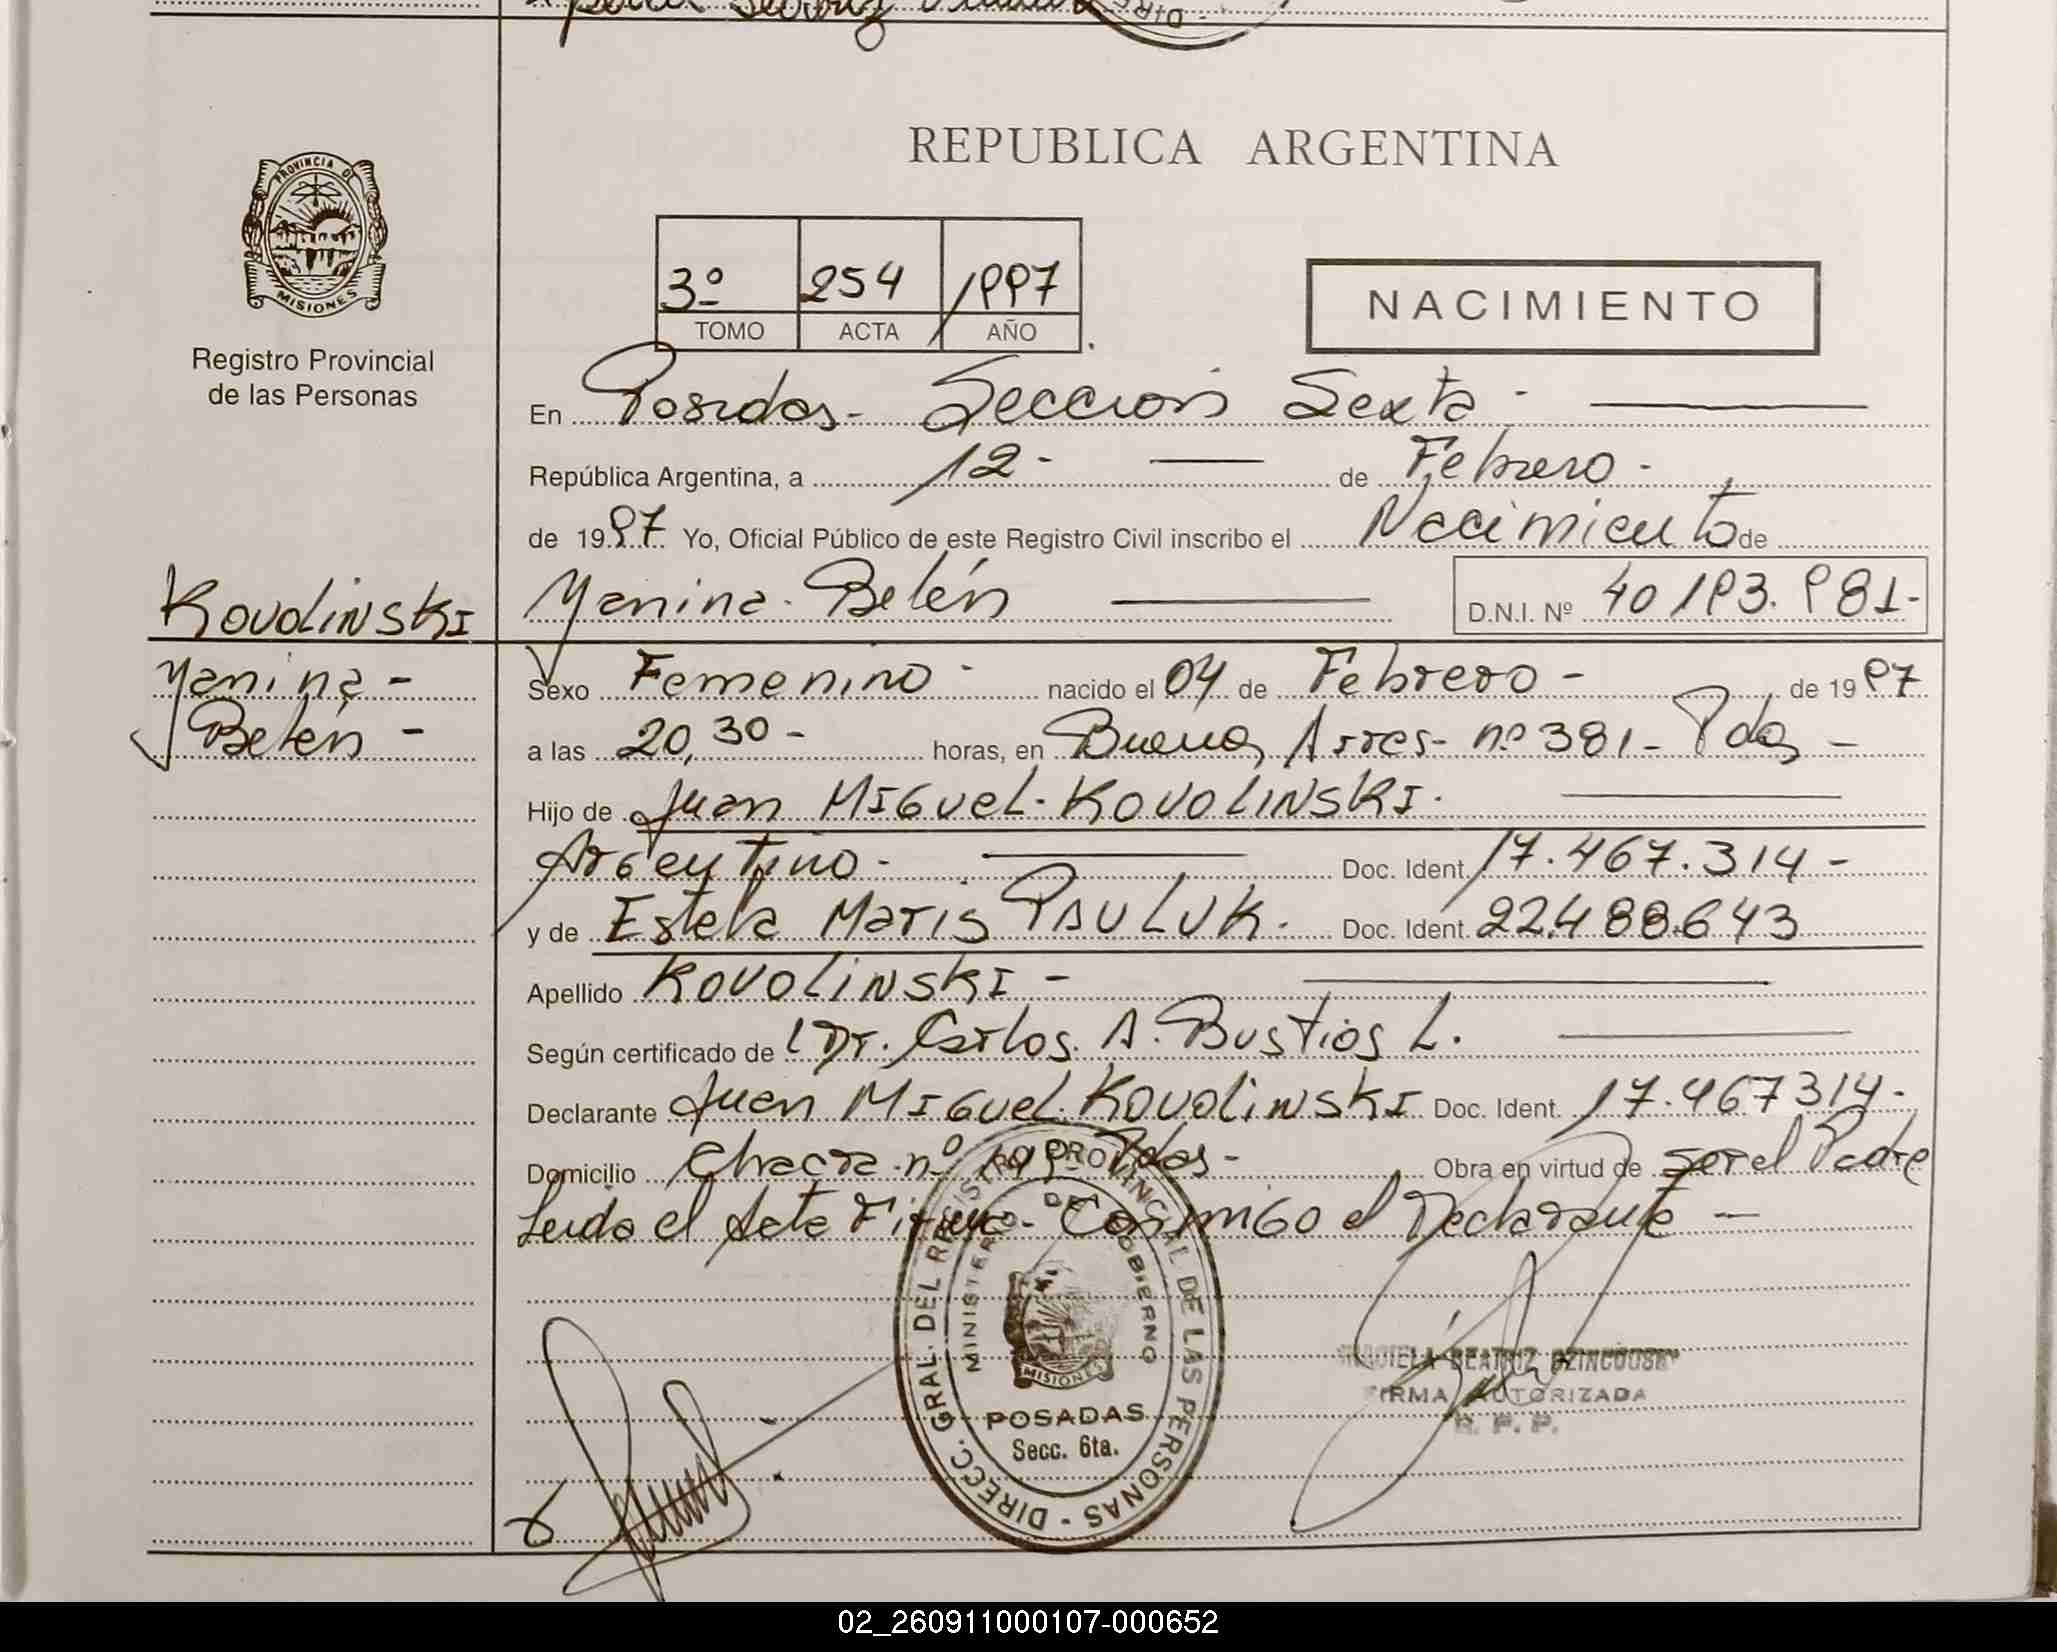 REPUBLICA ARGENTINA
PROVINCIA DE
MISIONES
Registro Provincial
de las Personas
3º 254 1997
TOMO ACTA AÑO
NACIMIENTO
En Posadas - Sección Sexta -
República Argentina, a 12 - de Febrero -
de 1997 Yo, Oficial Público de este Registro Civil inscribo el Nacimiento de
Kovolinski Yanina Belén D.N.I. Nº 40193.981-
Yanina - Sexo Femenino - nacido el 04 de Febrero - de 1997
Belén - a las 20,30 - horas, en Buenos Aires - nº 381 - Pdas -
Hijo de Juan Miguel KOVOLINSKI.
Argentino - Doc. Ident. 17.467.314 -
y de Estela Maris PAULUK. Doc. Ident. 22.488.643
Apellido KOVOLINSKI -
Según certificado de Dr. Carlos A. Bustios L.
Declarante Juan Miguel Kovolinski Doc. Ident. 17.467314-
Domicilio Chacra nº Pdas - Obra en virtud de ser el Padre
Leida el Acta Firma Conmigo el Declarante -
DIRECC. GRAL. DEL REGISTRO PROVINCIAL DE LAS PERSONAS -
MINISTERIO DE GOBIERNO
MISIONES
POSADAS
Secc. 6ta.
BEATRIZ
FIRMA AUTORIZADA
R. P. P.
02_260911000107-000652